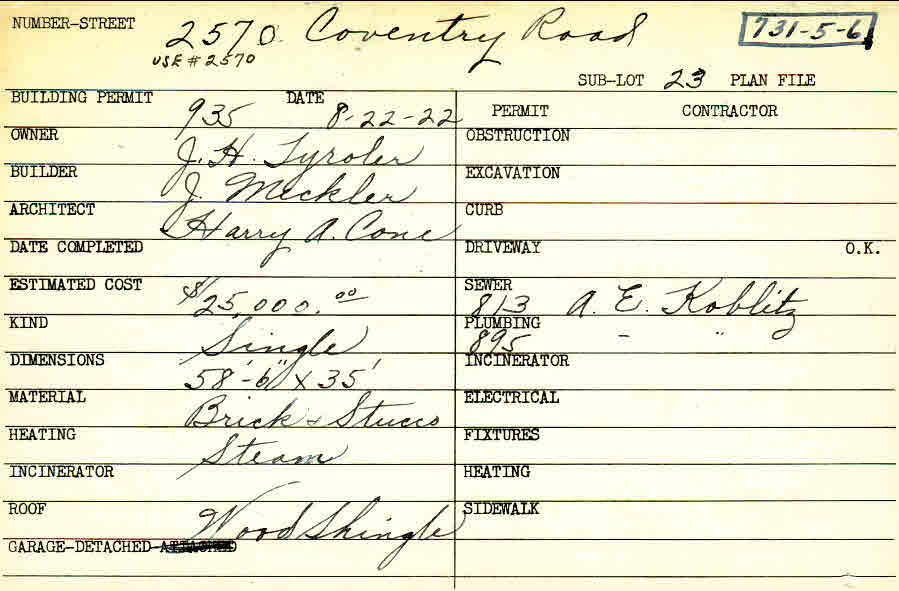 NUMBER-STREET 2570 Coventry Road 731-5-6
USE #2570
SUB-LOT 23 PLAN FILE
BUILDING PERMIT 935 DATE 8-22-22
PERMIT CONTRACTOR
OWNER J. H. Tyroler
OBSTRUCTION
BUILDER J. Meckler
EXCAVATION
ARCHITECT Harry A. Cone
CURB
DATE COMPLETED
DRIVEWAY O.K.
ESTIMATED COST $25,000.00
SEWER 813 A. E. Koblitz
KIND Single
PLUMBING 895 – "
DIMENSIONS 58'-6" x 35'
INCINERATOR
MATERIAL Brick & Stucco
ELECTRICAL
HEATING Steam
FIXTURES
INCINERATOR
HEATING
ROOF Wood Shingle
SIDEWALK
GARAGE-DETACHED-ATTACHED